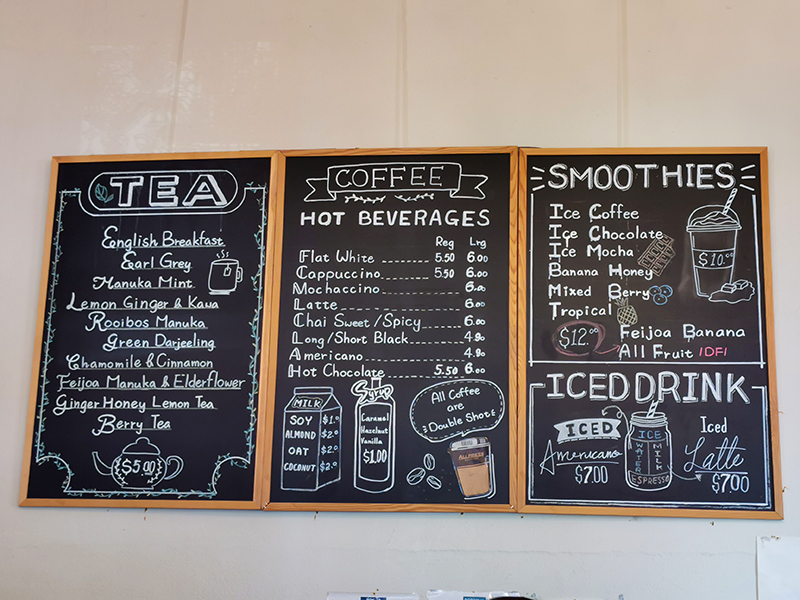 TEA
English Breakfast
Earl Grey
Manuka Mint
Lemon Ginger & Kawa
Rooibos Manuka
Green Darjeeling
Chamomile & Cinnamon
Feijoa Manuka & Elderflower
Ginger Honey Lemon Tea
Berry Tea
$5.00
COFFEE
HOT BEVERAGES
Reg Lrg
Flat White 5.50 6.00
Cappuccino 5.50 6.00
Mochaccino 6.00
Latte 6.00
Chai Sweet/Spicy 6.00
Long/Short Black 4.80
Americano 4.80
Hot Chocolate 5.50 6.00
MILK
SOY $1.0
ALMOND $2.0
OAT $2.0
COCONUT $2.0
Syrup
Caramel
Hazelnut
Vanilla
$1.00
All Coffee
are
Double Shot
ALLPRESS
SMOOTHIES
Ice Coffee
Ice Chocolate
Ice Mocha
Banana Honey
Mixed Berry
Tropical
$10.00
$12.00
Feijoa Banana
All Fruit (DF)
ICED DRINK
ICED
Americano
$7.00
ICE
WATER
MILK
ESPRESSO
Iced
Latte
$7.00